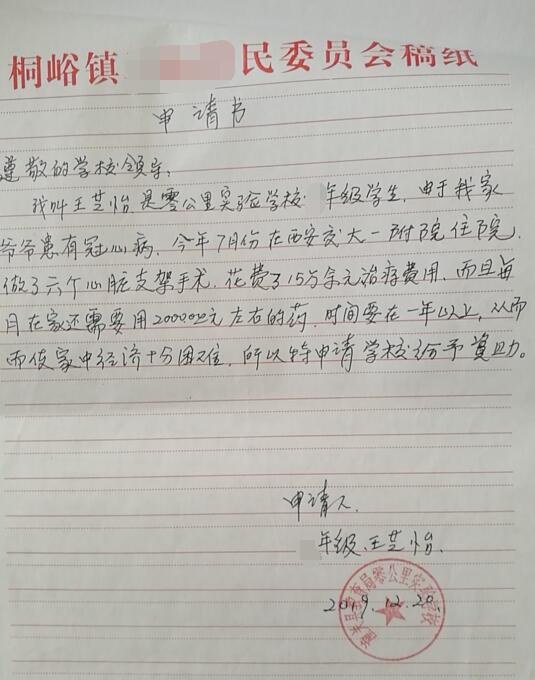 桐峪镇 民委员会稿纸
申请书
尊敬的学校领导:
我叫王芝怡是零公里实验学校 年级学生,由于我家
爷爷患有冠心病,今年7月份在西安交大一附院住院,
做了六个心脏支架手术,花费了15万余元治疗费用,而且每
月在家还需要用2000.00元左右的药,时间要在一年以上,从而
而使家中经济十分困难,所以特申请学校给予资助。
申请人
年级、王芝怡.
2019.12.20.
潼关县教育局零公里实验学校